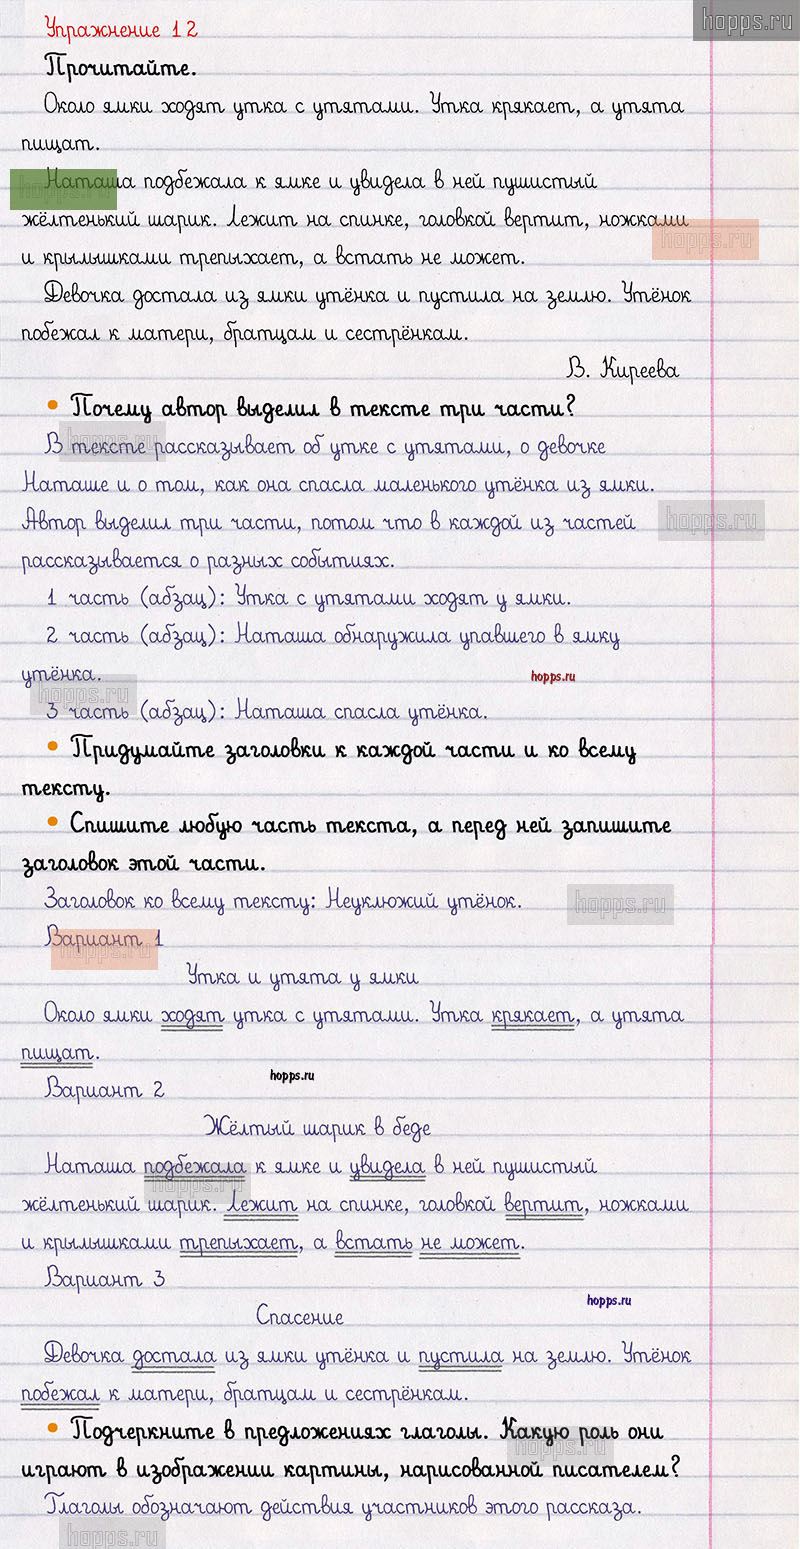 hopps.ru
Упражнение 12
Прочитайте.
Около ямки ходят утка с утятами. Утка крякает, а утята
пищат.
Наташа подбежала к ямке и увидела в ней пушистый
hopps.ru
жёлтенький шарик. Лежит на спинке, головкой вертит, ножками
hopps.ru
и крылышками трепыхает, а встать не может.
Девочка достала из ямки утёнка и пустила на землю. Утёнок
побежал к матери, братцам и сестрёнкам.
В. Киреева
• Почему автор выделил в тексте три части?
В тексте рассказывает об утке с утятами, о девочке
hopps.ru
Наташе и о том, как она спасла маленького утёнка из ямки.
Автор выделил три части, потом что в каждой из частей
hopps.ru
рассказывается о разных событиях.
1 часть (абзац): Утка с утятами ходят у ямки.
2 часть (абзац): Наташа обнаружила упавшего в ямку
утёнка.
hopps.ru
hopps.ru
3 часть (абзац): Наташа спасла утёнка.
• Придумайте заголовки к каждой части и ко всему
тексту.
• Спишите любую часть текста, а перед ней запишите
заголовок этой части.
Заголовок ко всему тексту: Неуклюжий утёнок.
hopps.ru
Вариант 1
hopps.ru
Утка и утята у ямки
Около ямки ходят утка с утятами. Утка крякает, а утята
пищат.
hopps.ru
Вариант 2
Жёлтый шарик в беде
Наташа подбежала к ямке и увидела в ней пушистый
hopps.ru
жёлтенький шарик. Лежит на спинке, головкой вертит, ножками
и крылышками трепыхает, а встать не может.
Вариант 3
hopps.ru
Спасение
Девочка достала из ямки утёнка и пустила на землю. Утёнок
побежал к матери, братцам и сестрёнкам.
• Подчеркните в предложениях глаголы. Какую роль они
hopps.ru
играют в изображении картины, нарисованной писателем?
Глаголы обозначают действия участников этого рассказа.
hopps.ru